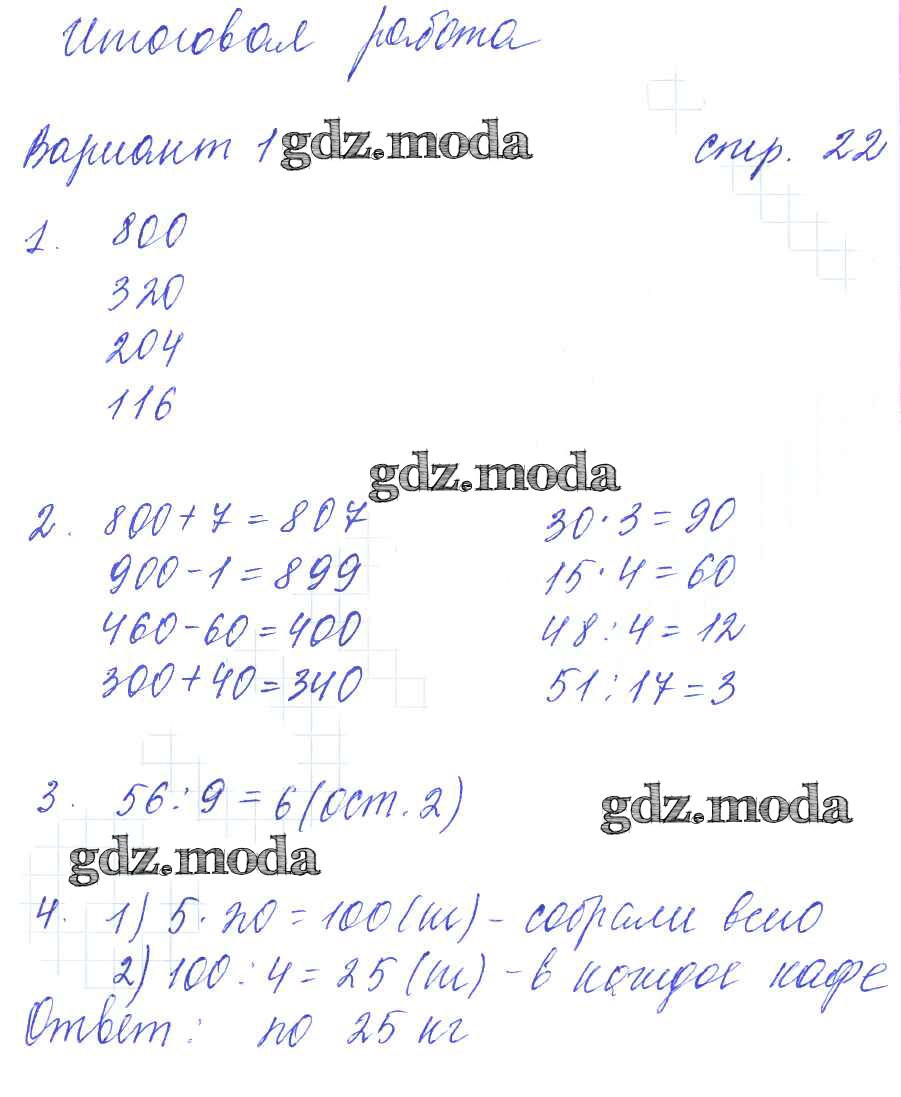 Итоговая работа
Вариант 1 gdz.moda стр. 22
1. 800
320
204
116
gdz.moda
2. 800+7=807 30·3=90
900-1=899 15·4=60
460-60=400 48:4=12
300+40=340 51:17=3
3. 56:9=6(ост.2) gdz.moda
gdz.moda
4. 1) 5·20=100(кг) - собрали всего
2) 100:4=25(кг) - в каждое кафе
Ответ: по 25 кг